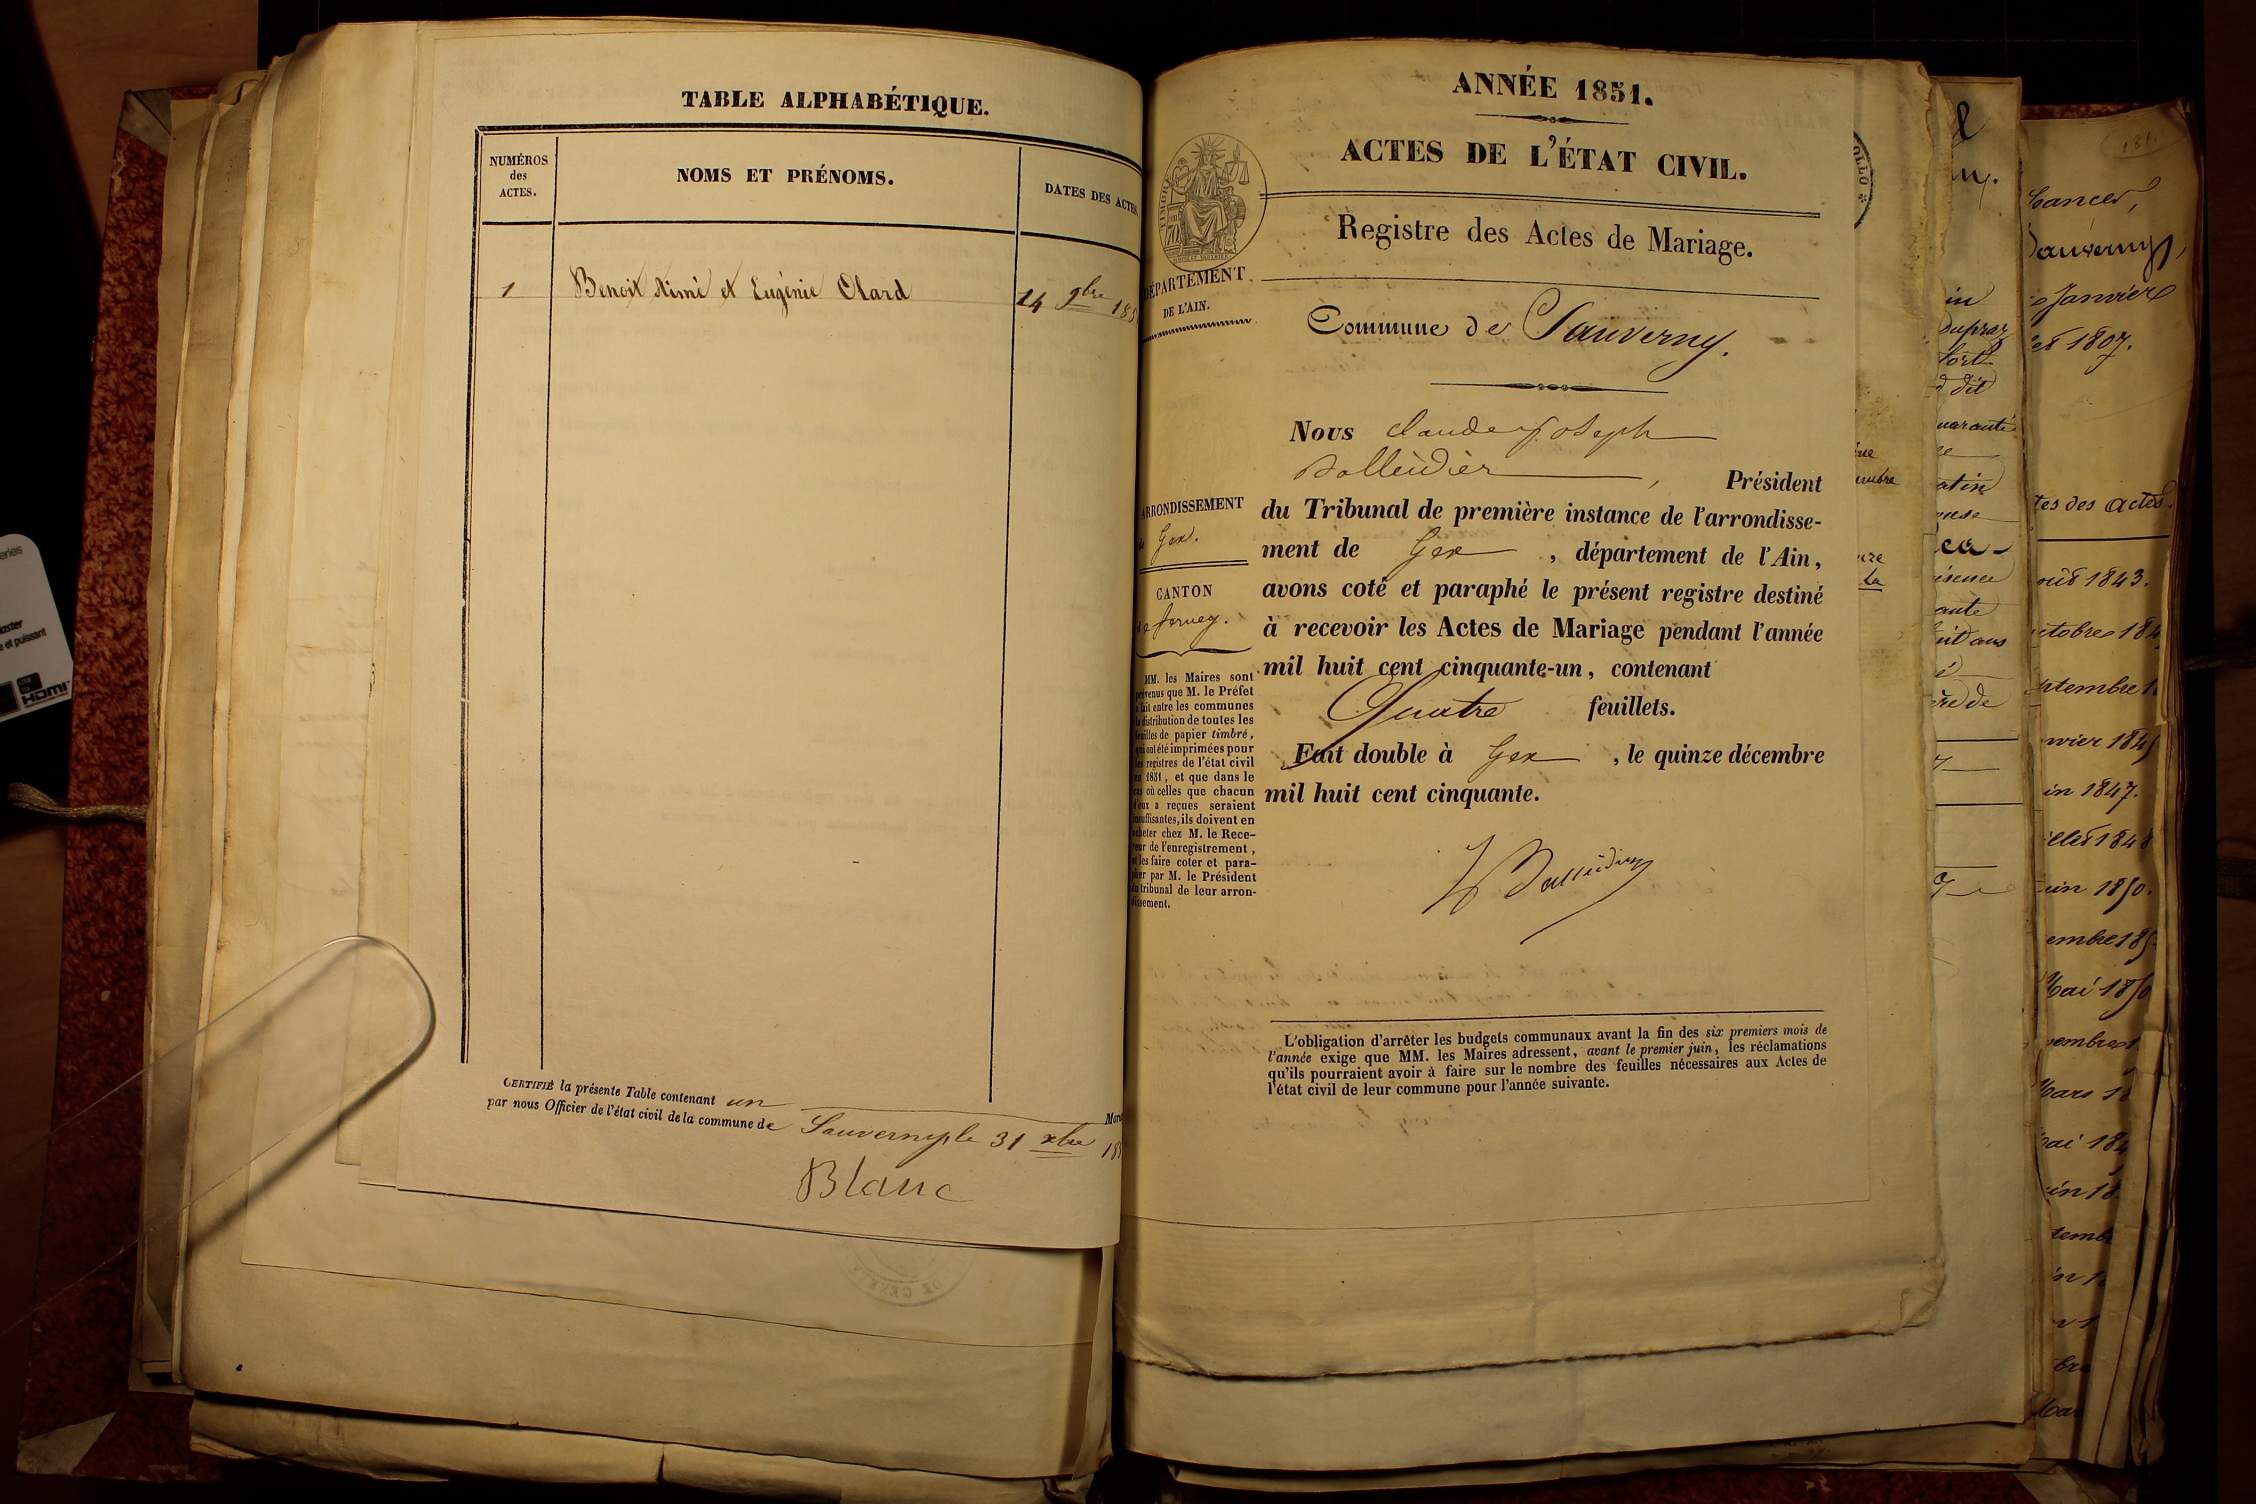 TABLE ALPHABÉTIQUE.
NUMÉROS
des
ACTES.
NOMS ET PRÉNOMS.
DATES DES ACTES
1
Benoit Aimé et Eugénie Olard
14 9bre 185
CERTIFIÉ la présente Table contenant un
par nous Officier de l'état civil de la commune de Sauverny le 31 xbre 185
Blanc
ANNÉE 1851.
ACTES DE L'ÉTAT CIVIL.
Registre des Actes de Mariage.
DÉPARTEMENT
DE L'AIN.
Commune de Sauverny.
Nous Claude Joseph
Balleidier, Président
du Tribunal de première instance de l'arrondisse-
ment de Gex, département de l'Ain,
avons coté et paraphé le présent registre destiné
à recevoir les Actes de Mariage pendant l'année
mil huit cent cinquante-un, contenant
Quatre feuillets.
Fait double à Gex, le quinze décembre
mil huit cent cinquante.
Balleidier
ARRONDISSEMENT
de Gex.
CANTON
de Ferney.
MM. les Maires sont
prévenus que M. le Préfet
a fait entre les communes
la distribution de toutes les
feuilles de papier timbré,
qui ont été imprimées pour
les registres de l'état civil
en 1851, et que dans le
cas où celles que chacun
d'eux a reçues seraient
insuffisantes, ils doivent en
acheter chez M. le Rece-
veur de l'enregistrement,
et les faire coter et para-
pher par M. le Président
du tribunal de leur arron-
dissement.
L'obligation d'arrêter les budgets communaux avant la fin des six premiers mois de
l'année exige que MM. les Maires adressent, avant le premier juin, les réclamations
qu'ils pourraient avoir à faire sur le nombre des feuilles nécessaires aux Actes de
l'état civil de leur commune pour l'année suivante.
181.
Sauverny,
Janvier
1807.
tes des actes.
1843.
1847.
1848
1850.
Mai 1850
HDMI